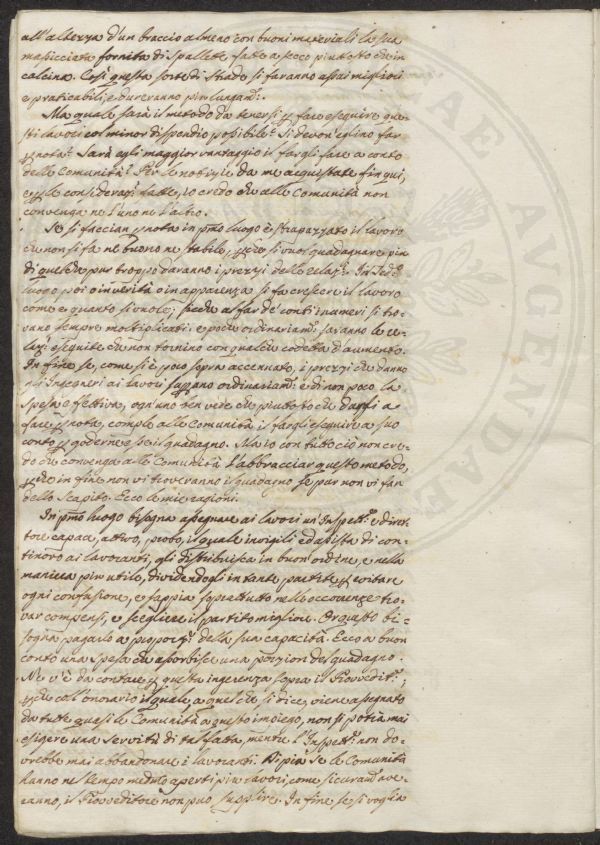 all'altezza d'un braccio almeno con buoni materiali la sua
massicciata fornita di spallette fatte a secco piutosto che in
calcina. Così questa sorte di strade si faranno assai migliori
e praticabili, e dureranno più lungam.
Ma quale sarà il metodo da tenersi per fare eseguire que-
sti lavori col minor dispendio possibile? Si devon eglino far
per nota? Sarà egli maggior vantaggio il fargli fare a conto
delle Comunità? Per le notizie da me acquistate fin qui,
e per le considerazi. fatte, io credo che alle Comunità non
convenga ne l'uno ne l'altro.
Se si faccian per nota in pmo luogo è strapazzato il lavoro
che non si fa ne buono ne stabile, perche si vuol guadagnare più
di quello che pur troppo daranno i prezzi delle relaz. In
luogo poi o in verità o in apparenza si fa crescere il lavoro
come e quanto si vuole; sicche al far de' conti i numeri si tro-
vano sempre moltiplicati: e poche ordinariam. saranno le re-
laz. eseguite che non tornino con qualche codetta d'aumento.
In fine se, come si è poco sopra accennato, i prezzi che danno
gl'Ingegneri ai lavori ordinariam. e di non poco la
spesa effettiva, ogn'uno ben vede che piutosto che darsi a
fare per nota, comple alle Comunità il fargli eseguire a suo
conto per goderne esse il guadagno. Ma io con tutto ciò non cre-
do che convenga alle Comunità l'abbracciar questo metodo,
perche in fine non vi troveranno il guadagno se pur non vi fan
dello scapito. Ecco le mie ragioni.
In pmo luogo bisogna assegnare ai lavori un Inspett. e diret-
tore capace, attivo, probo, il quale invigili ed assista di con-
tinovo ai lavoranti, gli distribuisca in buon ordine, e nella
maniera più utile, dividendogli in tante partite per evitare
ogni confusione, e sappia soprattutto nelle occorrenze tro-
var compensi, e scegliere il partito migliore. Or questo bi-
sogna pagarlo a proporz. della sua capacità. Ecco a buon
conto una spesa che assorbisce una porzion del guadagno.
Ne v'è da contare per questa ingerenza sopra il Provvedit.;
perche coll'onorario il quale, a quel che si dice, viene assegnato
da tutte quasi le Comunità a questo impiego, non si potrà mai
esigere una servitù di tal fatta, mentre l'Inspett. non do-
vrebbe mai abbandonare i lavoranti. Di più se le Comunità
hanno nel tempo medmo aperti più lavori, come sicuram. ave-
ranno, il Provveditore non può supplire. In fine se si voglia